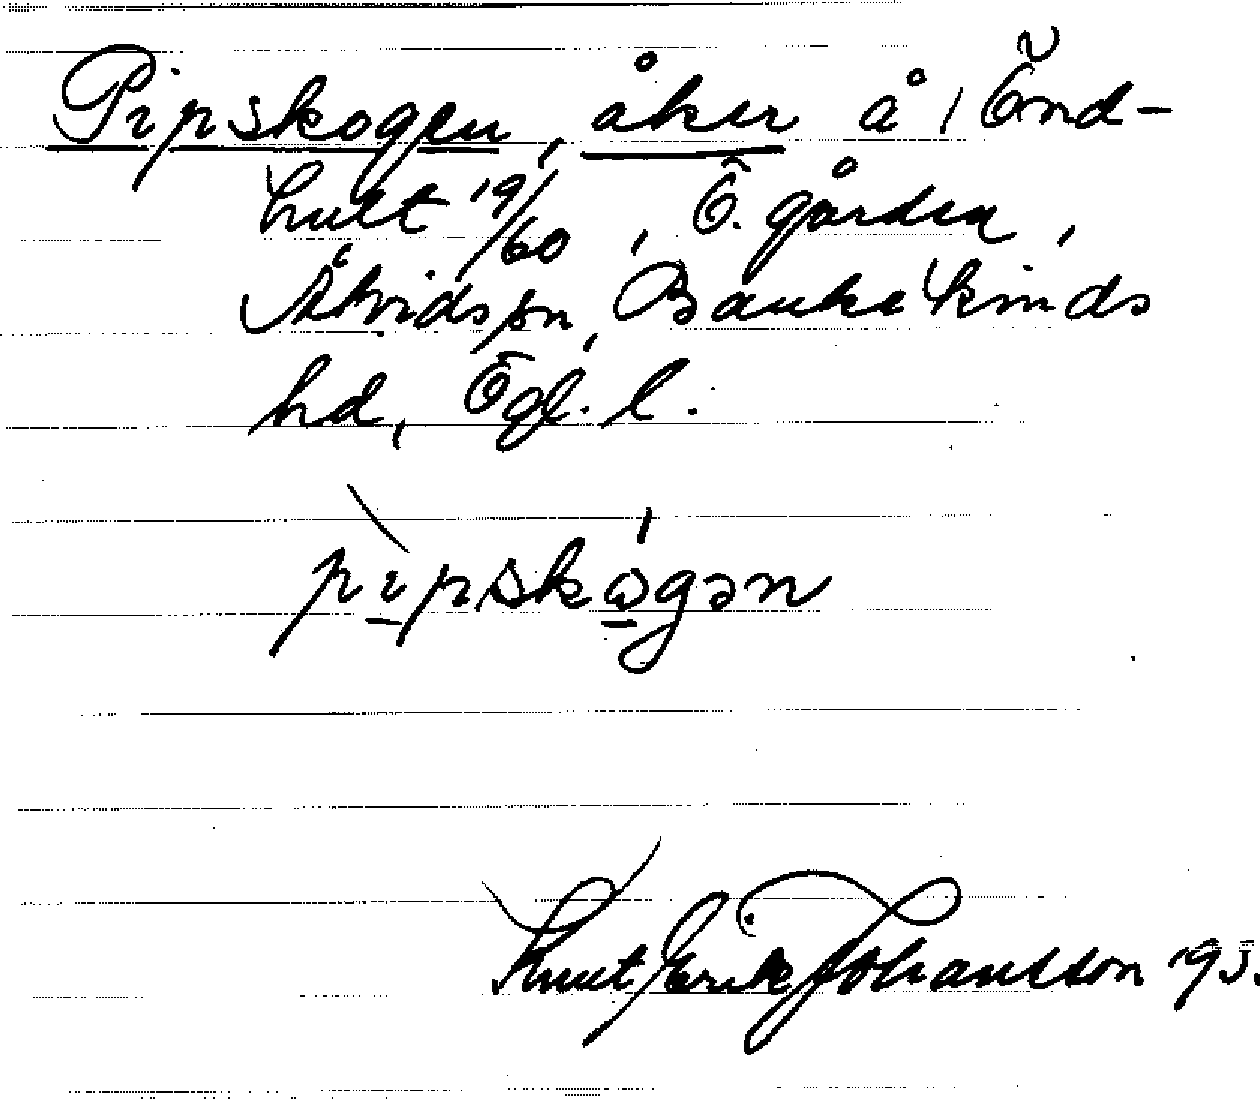 Pipskogen, åker å 1 Önd-
hult 19/60, Ö. gården,
Åtvids sn, Bankekinds
hd, Ögl. l.
pìpskógən
Knut Erik Johansson 193